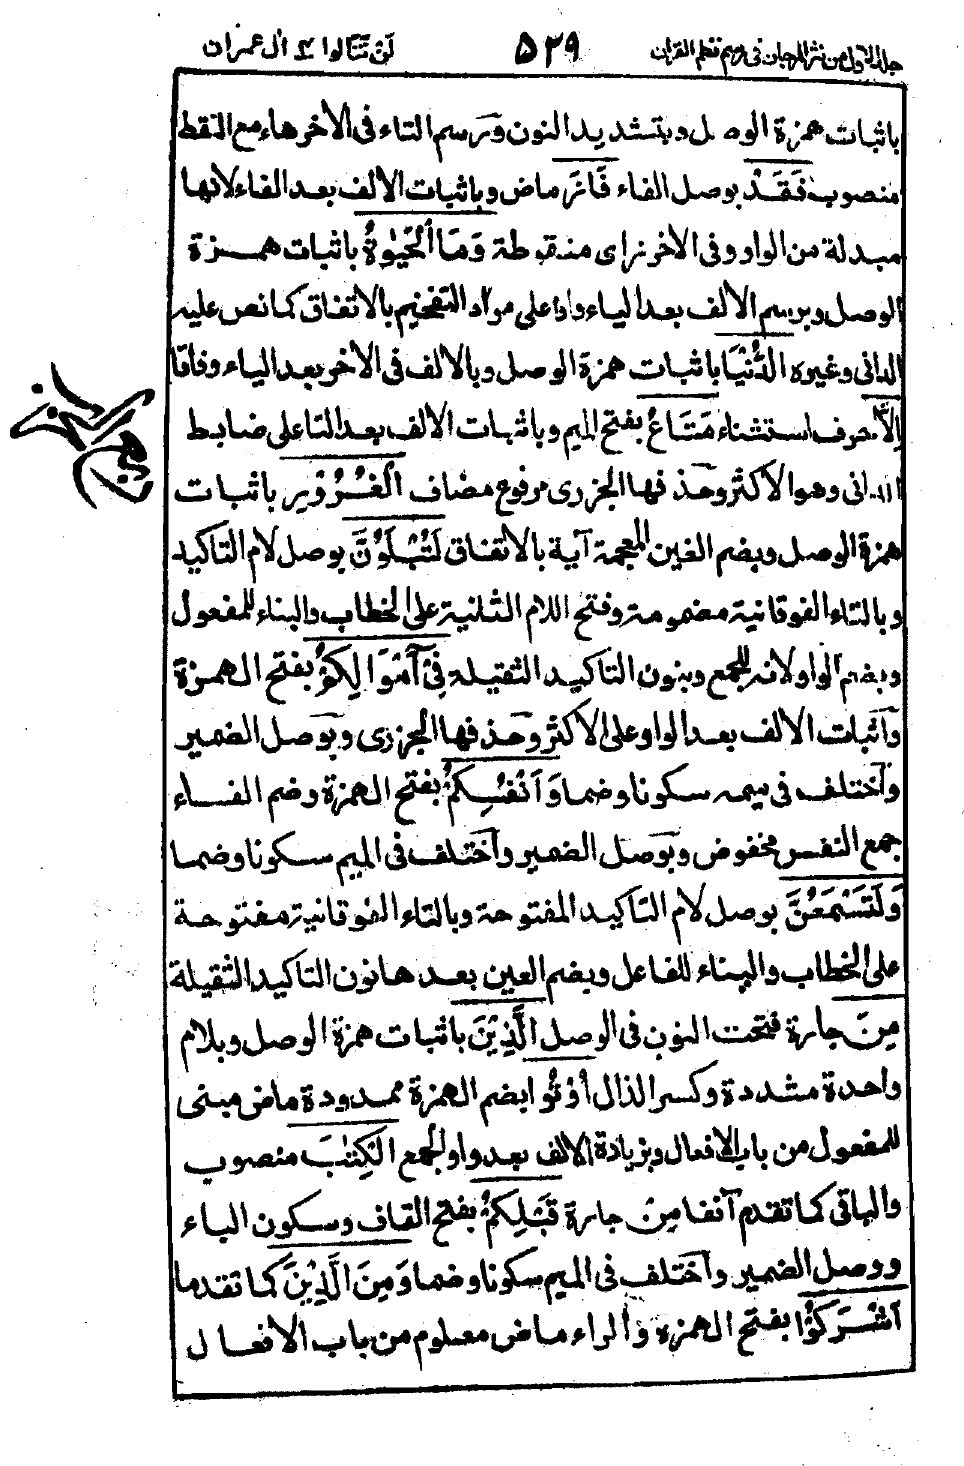 جلد الاول من نثر المرجان فى رسم نظم القران ٥٢٩ لَنْ تَنَالوا ٤ ال عمران
باثبات همزة الوصل وبتشديد النون وَرسم التاء فى الاخر هاء مع النقط
منصوب فَقَدْ بوصل الفاء فَازَ ماض وباثبات الالف بعد الفاء لانها
مبدلة من الواو وفى الاخر زاى منقوطة وَمَا الْحَيٰوةُ باثبات همزة
الوصل وبرسم الالف بعد الياء واوا على مراد التفخيم بالاتفاق كما نص عليه
الدانى وغيره الدُّنْيَا باثبات همزة الوصل وبالالف فى الاخر بعد الياء وفاقا
اِلَّا حرف استثناء مَتَاعُ بفتح الميم وباثبات الالف بعد التا على ضابط
الدانى وهو الاكثر وحَذفها الجزرى مرفوع مضاف الْغُرُوْرِ باثبات
همزة الوصل وبضم الغين المعجمة آية بالاتفاق لَتُبْلَوُنَّ بوصل لام التاكيد
وبالتاء الفوقانية مضمومة وفتح اللام الثانية على الخطاب والبناء للمفعول
وبضم الواو لانه للجمع وبنون التاكيد الثقيلة فِىْ اَمْوَالِكُمْ بفتح الهمزة
وَاثبات الالف بعد الواو على الاكثر وحَذفها الجزرى وبوصل الضمير
واَختلف فى ميمه سكونا وضما وَاَنْفُسِكُمْ بفتح الهمزة وضم الفاء
جمع النفس مخفوض وبَوصل الضمير واَختلف فى الميم سكونا وضما
وَلَتَسْمَعُنَّ بوصل لام التاكيد المفتوحة وبالتاء الفوقانية مفتوحة
على الخطاب والبناء للفاعل وبضم العين بعدها نون التاكيد الثقيلة
مِنَ جارة فتحت النون فى الوصل الَّذِيْنَ باثبات همزة الوصل وبلام
واحدة مشددة وكسر الذال اُوْتُوا بضم الهمزة ممدودة ماض مبنى
للمفعول من باب الافعال وبزيادة الالف بعد واو الجمع الْكِتٰبَ منصوب
والباقى كما تقدم آنفا مِنْ جارة قَبْلِكُمْ بفتح القاف وسكون الباء
ووصل الضمير واَختلف فى الميم سكونا وضما وَمِنَ الَّذِيْنَ كما تقدما
اَشْرَكُوْا بفتح الهمزه والراء ماض معلوم من باب الافعال